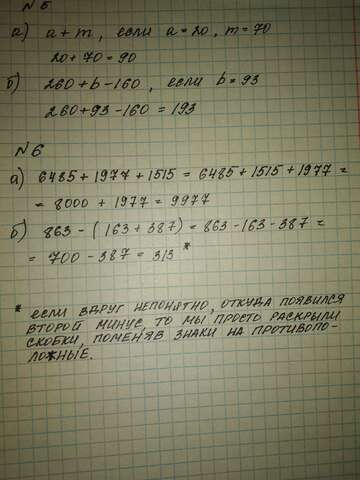 N 5
а) a + m, если a = 20, m = 70
20 + 70 = 90
б) 260 + b - 160, если b = 93
260 + 93 - 160 = 193
N 6
а) 6485 + 1977 + 1515 = 6485 + 1515 + 1977 =
= 8000 + 1977 = 9977
б) 863 - (163 + 387) = 863 - 163 - 387 =
= 700 - 387 = 313 *
* ЕСЛИ ВДРУГ НЕПОНЯТНО, ОТКУДА ПОЯВИЛСЯ
ВТОРОЙ МИНУС, ТО МЫ ПРОСТО РАСКРЫЛИ
СКОБКИ, ПОМЕНЯВ ЗНАКИ НА ПРОТИВОПО-
ЛОЖНЫЕ.